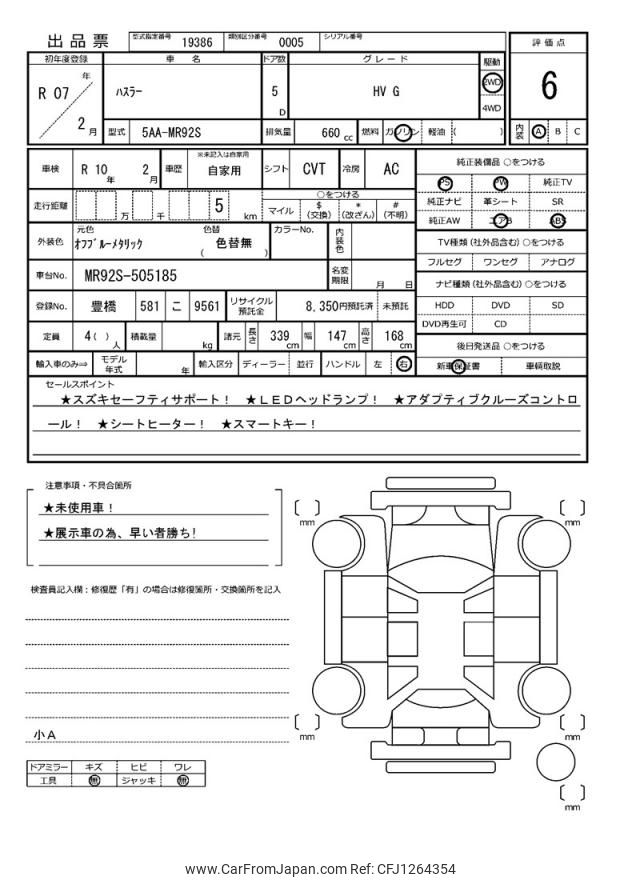 出品票
型式指定番号 19386 類別区分番号 0005 シリアル番号
評価点
6
初年度登録 車名 ドア数 グレード 駆動
R 07 年 2 月
ハスラー
5 D
HV G
2WD
4WD
型式 5AA-MR92S 排気量 660 cc 燃料 ガソリン 軽油 ( )
内装 A B C
車検 R 10 年 2 月 車歴 ※未記入は自家用 自家用 シフト CVT 冷房 AC
走行距離 万 千 5 km
○をつける
マイル $(交換) *(改ざん) #(不明)
外装色 元色 ｵﾌﾌﾞﾙｰﾒﾀﾘｯｸ 色替 ( 色替無 ) カラーNo. 内装色
車台No. MR92S-505185 名変期限 月 日
登録No. 豊橋 581 こ 9561 リサイクル預託金 8,350円預託済 未預託
定員 4( ) 人 積載量 kg 諸元 長さ 339 cm 幅 147 cm 高さ 168 cm
輸入車のみ⇒ モデル年式 年 輸入区分 ディーラー 並行 ハンドル 左 右
純正装備品 ○をつける
PS PW 純正TV
純正ナビ 革シート SR
純正AW エアB ABS
TV種類(社外品含む) ○をつける
フルセグ ワンセグ アナログ
ナビ種類(社外品含む) ○をつける
HDD DVD SD
DVD再生可 CD
後日発送品 ○をつける
新車保証書 車輌取説
セールスポイント
★スズキセーフティサポート！ ★ＬＥＤヘッドランプ！ ★アダプティブクルーズコントロ
ール！ ★シートヒーター！ ★スマートキー！
注意事項・不具合箇所
★未使用車！
★展示車の為、早い者勝ち！
検査員記入欄：修復歴「有」の場合は修復箇所・交換箇所を記入
小Ａ
ドアミラー キズ ヒビ ワレ
工具 無 ジャッキ 無
mm
mm
mm
mm
mm
www.CarFromJapan.com Ref: CFJ1264354